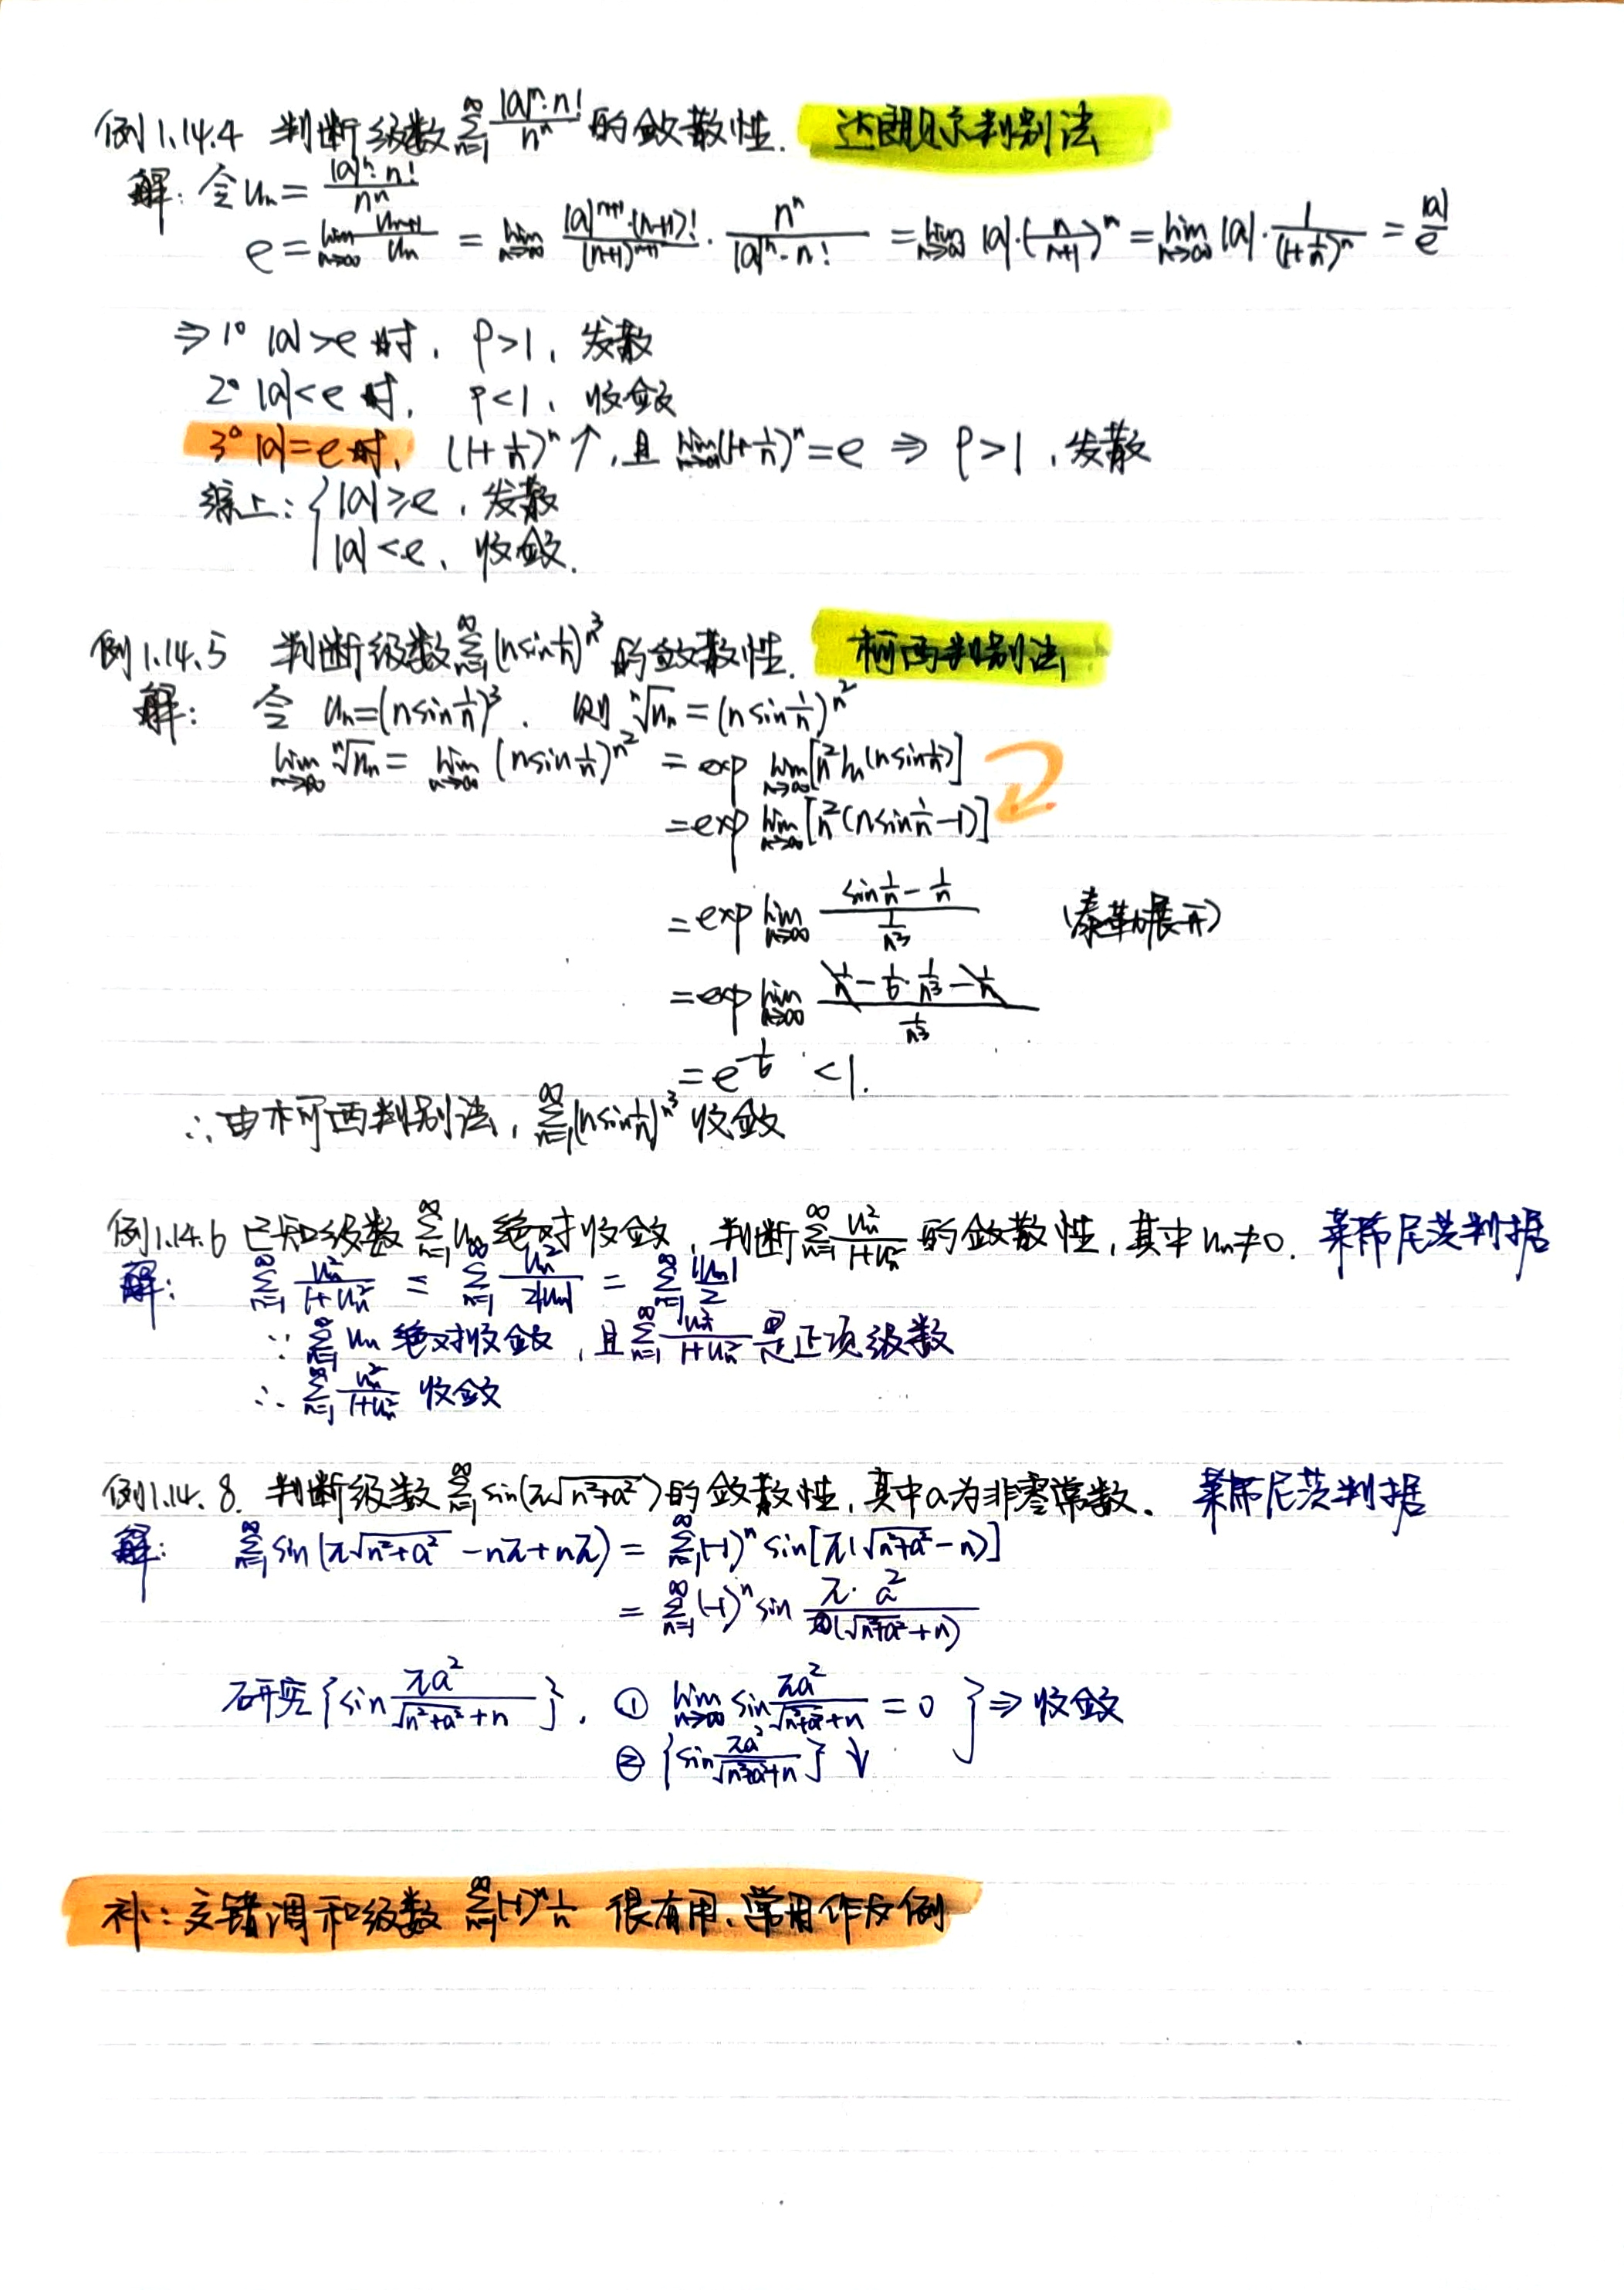 例1.14.4 判断级数∑_{n=1}^{∞} |a|^n·n!/n^n 的敛散性. 达朗贝尔判别法
解: 令 u_n = |a|^n·n!/n^n
ρ = lim_{n→∞} u_{n+1}/u_n = lim_{n→∞} |a|^{n+1}·(n+1)!/(n+1)^{n+1} · n^n/(|a|^n·n!) = lim_{n→∞} |a|·(n/(n+1))^n = lim_{n→∞} |a|·1/(1+1/n)^n = |a|/e
⇒ 1° |a|>e 时, ρ>1, 发散
2° |a|<e 时, ρ<1, 收敛
3° |a|=e 时, (1+1/n)^n ↑, 且 lim_{n→∞}(1+1/n)^n = e ⇒ ρ>1, 发散
综上: { |a|≥e, 发散
|a|<e, 收敛.
例1.14.5 判断级数∑_{n=1}^{∞} (n sin 1/n)^{n^3} 的敛散性. 柯西判别法
解: 令 u_n = (n sin 1/n)^3. 则 ⁿ√u_n = (n sin 1/n)^{n^2}
lim_{n→∞} ⁿ√u_n = lim_{n→∞} (n sin 1/n)^{n^2} = exp lim_{n→∞} [n^2 ln(n sin 1/n)]
= exp lim_{n→∞} [n^2 (n sin 1/n − 1)]
= exp lim_{n→∞} (sin 1/n − 1/n)/(1/n^3) (泰勒展开)
= exp lim_{n→∞} (1/n − 1/6·1/n^3 − 1/n)/(1/n^3)
= e^{-1/6} < 1.
∴ 由柯西判别法, ∑_{n=1}^{∞} (n sin 1/n)^{n^3} 收敛
例1.14.6 已知级数 ∑_{n=1}^{∞} u_n 绝对收敛, 判断 ∑_{n=1}^{∞} u_n^2/(1+u_n^2) 的敛散性, 其中 u_n≠0. 莱布尼茨判据
解: ∑_{n=1}^{∞} u_n^2/(1+u_n^2) ≤ ∑_{n=1}^{∞} u_n^2/(2|u_n|) = ∑_{n=1}^{∞} |u_n|/2
∵ ∑_{n=1}^{∞} u_n 绝对收敛, 且 ∑_{n=1}^{∞} u_n^2/(1+u_n^2) 是正项级数
∴ ∑_{n=1}^{∞} u_n^2/(1+u_n^2) 收敛
例1.14.8. 判断级数 ∑_{n=1}^{∞} sin(π√(n^2+a^2)) 的敛散性, 其中a为非零常数. 莱布尼茨判据
解: ∑_{n=1}^{∞} sin(π√(n^2+a^2) − nπ + nπ) = ∑_{n=1}^{∞} (-1)^n sin[π(√(n^2+a^2) − n)]
= ∑_{n=1}^{∞} (-1)^n sin π·a^2/(√(n^2+a^2)+n)
研究{sin πa^2/(√(n^2+a^2)+n)}, ① lim_{n→∞} sin πa^2/(√(n^2+a^2)+n) = 0 } ⇒ 收敛
② {sin πa^2/(√(n^2+a^2)+n)} ↓
补: 交错调和级数 ∑_{n=1}^{∞} (-1)^n 1/n 很有用、常用作反例